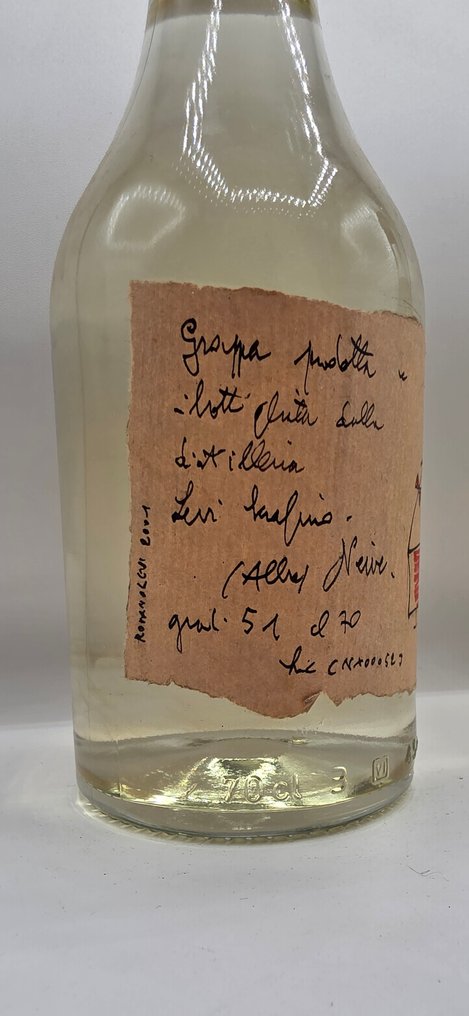 Grappa prodotta e
imbottigliata dalla
distilleria
Levi Serafino.
(Alba) Neive.
grad. 51 cl 70
lic CNA00052J
ROMANO LEVI 2001
70 cl 3